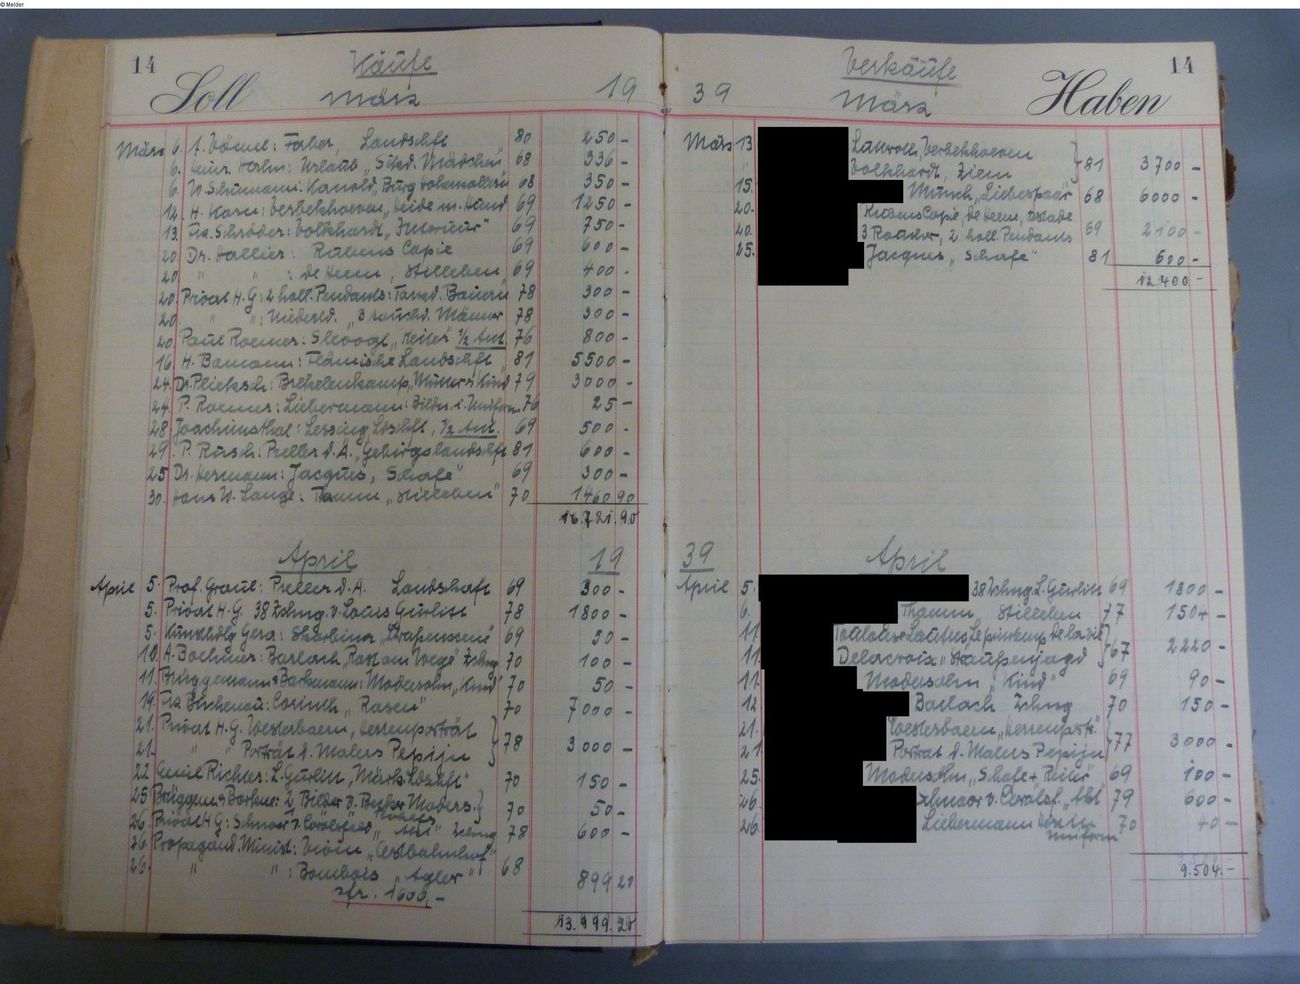 © Melder
14
Soll
Käufe
März
19
März 6. A. Vömel: Faber, Landschft 80 250 –
6. Heinr. Hahn: Urlaub, "Südd. Mädchen" 68 336 –
6. W. Schümann: Kanold, "Burg Hohenzollern" 68 350 –
12. H. Karn: Verbekhoeven, "Heide m. Hund 69 1250 –
13. Schröder: Volkhardt "Interieur" 69 750 –
20. Dr. Hallier: Rubens Copie 69 600 –
20 " " : de Heem, Stilleben 69 400 –
20. Privat H.G: 2 holl. Pendants: Tanzd. Bauern 78 300 –
20. " " : Niederld. "3 rauchd. Männer 78 300 –
20. Paul Roemer: Slevogt "Reiter" 1/2 Ant. 76 800 –
16. H. Bamann: Flämische Landschft 81 5500 –
24. Dr. Plietzsch: Brekelenkamp, "Mutter + Kind 79 3000 –
24. P. Roemer: Liebermann: Bildn. i. Uniform 76 25 –
28 Joachimsthal: Lessing Ldschft, 1/2 Ant. 69 500 –
29. P. Rusch: Preller d. Ä. "Gebirgslandschft 81 600 –
25 Dr. Hermann: Jacques, "Schafe" 69 300 –
30. Hans W. Lange: Thamm "Stilleben" 70 1460 90
16.721.90
April 19
April 5. Prof. Graul: Preller d. A. Landschaft 69 300 –
5. Privat H.G. 38 Zchng. v. Louis Gurlitt 78 1800 –
5. Kunsthdlg Gera: "Straßenszene" 69 50 –
10. A. Boehmer: Barlach, "Rast am Wege" Zchng 70 100 –
11. Brüggemann + Barkmann: Modersohn, "Kind" 70 50 –
19. Buchenau: Corinth, "Rosen" 70 7000 –
21. Privat H.G. Westerbaen, Herrenporträt
21. " " Porträt d. Malers Pepijn } 78 3000 –
22. Emil Richter: L. Gurlitt, "Märk. Ldschft" 70 150 –
25 Brüggem + Barkm: 2 Bilder v. Becker Moders. } 70 50 –
26. Privat H.G: Schnorr v. Carolsfeld, "Akt" Zchng 78 600 –
26. Propagand. Minist: "Ostbahnhof"
26. " " : Bombois "Angler" 68 899 20
sfr. 1600,–
13.999.20
14
Haben
Verkäufe
39 März
März 13 Verbekhoeven
Volkhardt, Ziem } 81 3700 –
15. Munch, "Liebespaar" 68 6000 –
20. Rubens Copie, de Heem,
20. 3 Raucher, 2 holl. Pendants 69 2100 –
25. Jacques, "Schafe" 81 600 –
12400.–
39 April
April 5. 38 Zchng L. Gurlitt 69 1800 –
6. Thamm Stilleben 77 1504 –
11. Toulouse Lautrec
11. Delacroix "Straußenjagd } 67 2220 –
11. Modersohn "Kind" 69 90 –
12 Barlach Zchng 70 150 –
21. Westerbaen "Herrenportr."
21. Porträt d. Malers Pepijn } 77 3000 –
25. Modersohn, "Schafe + Reiter" 69 100 –
26. Schnorr v. Carolsf. "Akt 79 600 –
26. Liebermann
Uniform 70 40 –
9.504.–